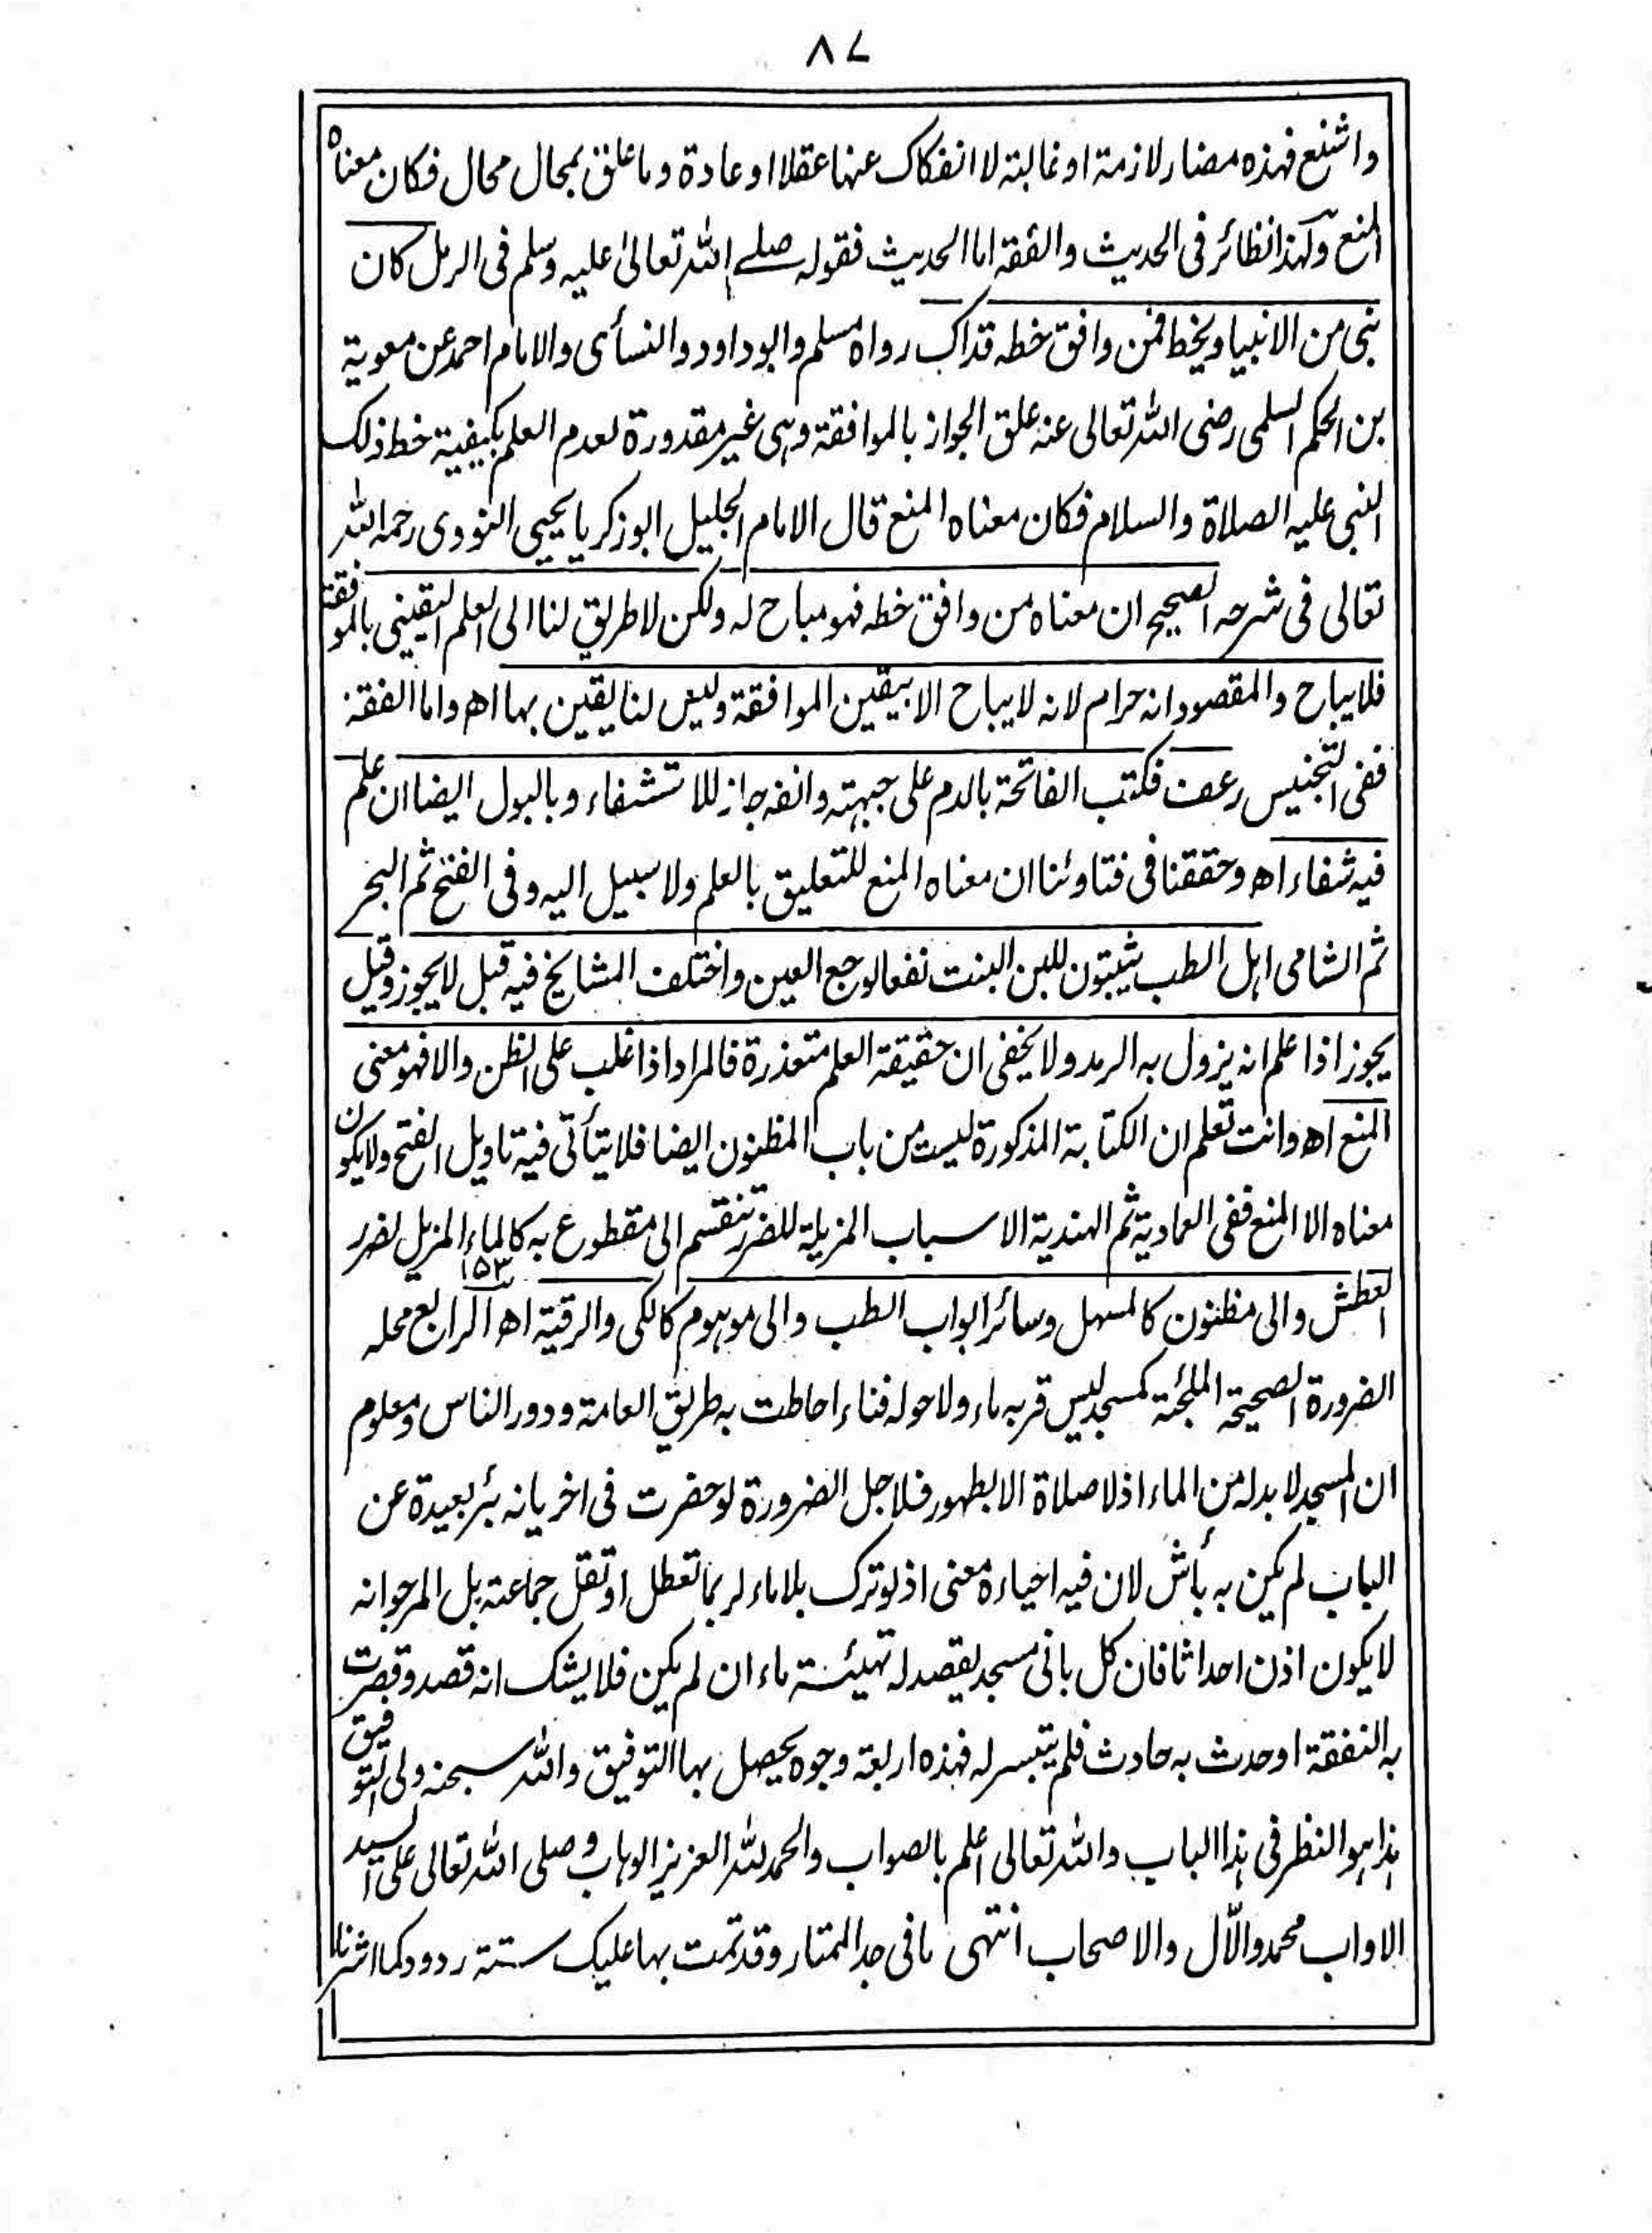 ٨٧
واشنع فهذه مضار لازمة او غالبة لا انفكاك عنها عقلا او عادة وما علق بمحال محال فكان معناه
المنع ولهذا نظائر فى الحديث والفقه اما الحديث فقوله صلے الله تعالیٰ علیه وسلم فى الرمل كان
نبی من الانبیاء یخط فمن وافق خطه فذاك رواه مسلم وابوداود والنسأى والامام احمد عن معوية
بن الحكم السلمی رضی الله تعالی عنه علق الجواز بالموافقة وهی غیر مقدورة لعدم العلم بكیفیة خط ذلك
النبی علیه الصلاة والسلام فكان معناه المنع قال الامام الجلیل ابوزكریا یحیی النووی رحمه الله
تعالی فی شرحه الصحیح ان معناه من وافق خطه فهو مباح له ولكن لا طریق لنا الی العلم الیقینی بالموافقة
فلا یباح والمقصود انه حرام لانه لا یباح الا بیقین الموافقة ولیس لنا یقین بها اھ واما الفقه
ففی التجنیس رعف فكتب الفاتحة بالدم علی جبهته وانفه جاز للاستشفاء وبالبول ایضا ان علم
فیه شفاء اھ وحققنا فی فتاوئنا ان معناه المنع للتعلیق بالعلم ولا سبیل الیه وفی الفتح ثم البحر
ثم الشامی اهل الطب یثبتون للبن البنت نفعا لوجع العین واختلف المشایخ فیه قیل لا یجوز وقیل
یجوز اذا علم انه یزول به الرمد ولا یخفی ان حقیقة العلم متعذرة فالمراد اذا غلب علی الظن والا فهو معنی
المنع اھ وانت تعلم ان الكتابة المذكورة لیست من باب المظنون ایضا فلا یتأتی فیه تاویل الفتح ولا یكون
معناه الا المنع ففی العمادیة ثم الهندیة الاسباب المزیلة للضرر تنقسم الی مقطوع به كالماء المزیل لضرر
١٥٣
العطش والی مظنون كالمسهل وسائر ابواب الطب والی موهوم كالكی والرقیة اھ الرابع محله
الضرورة الصحیحة الملجئة كمسجد لیس قربه ماء ولا حوله فناء احاطت به طریق العامة ودور الناس ومعلوم
ان المسجد لا بد له من الماء اذ لا صلاة الا بطهور فلاجل الضرورة لو حضرت فی اخریانه بئر بعیدة عن
الباب لم یكن به بأس لان فیه احیاءه معنی اذ لو ترك بلا ماء لربما تعطل او تقل جماعته بل المرجو انه
لا یكون اذن احداثا فان كل بانی مسجد یقصد له تهیئة ماء ان لم یكن فلا یشك انه قصد وقصرت
به النفقة او حدث به حادث فلم یتیسر له فهذه اربعة وجوه یحصل بها التوفیق والله سبحنه ولی التوفیق
هذا هو النظر فی هذا الباب والله تعالی اعلم بالصواب والحمد لله العزیز الوهاب وصلی الله تعالی علی السید
الاواب محمد والآل والاصحاب انتهی ما فی جد الممتار وقد تمت بها علیك ستة ردود كما اشرنا